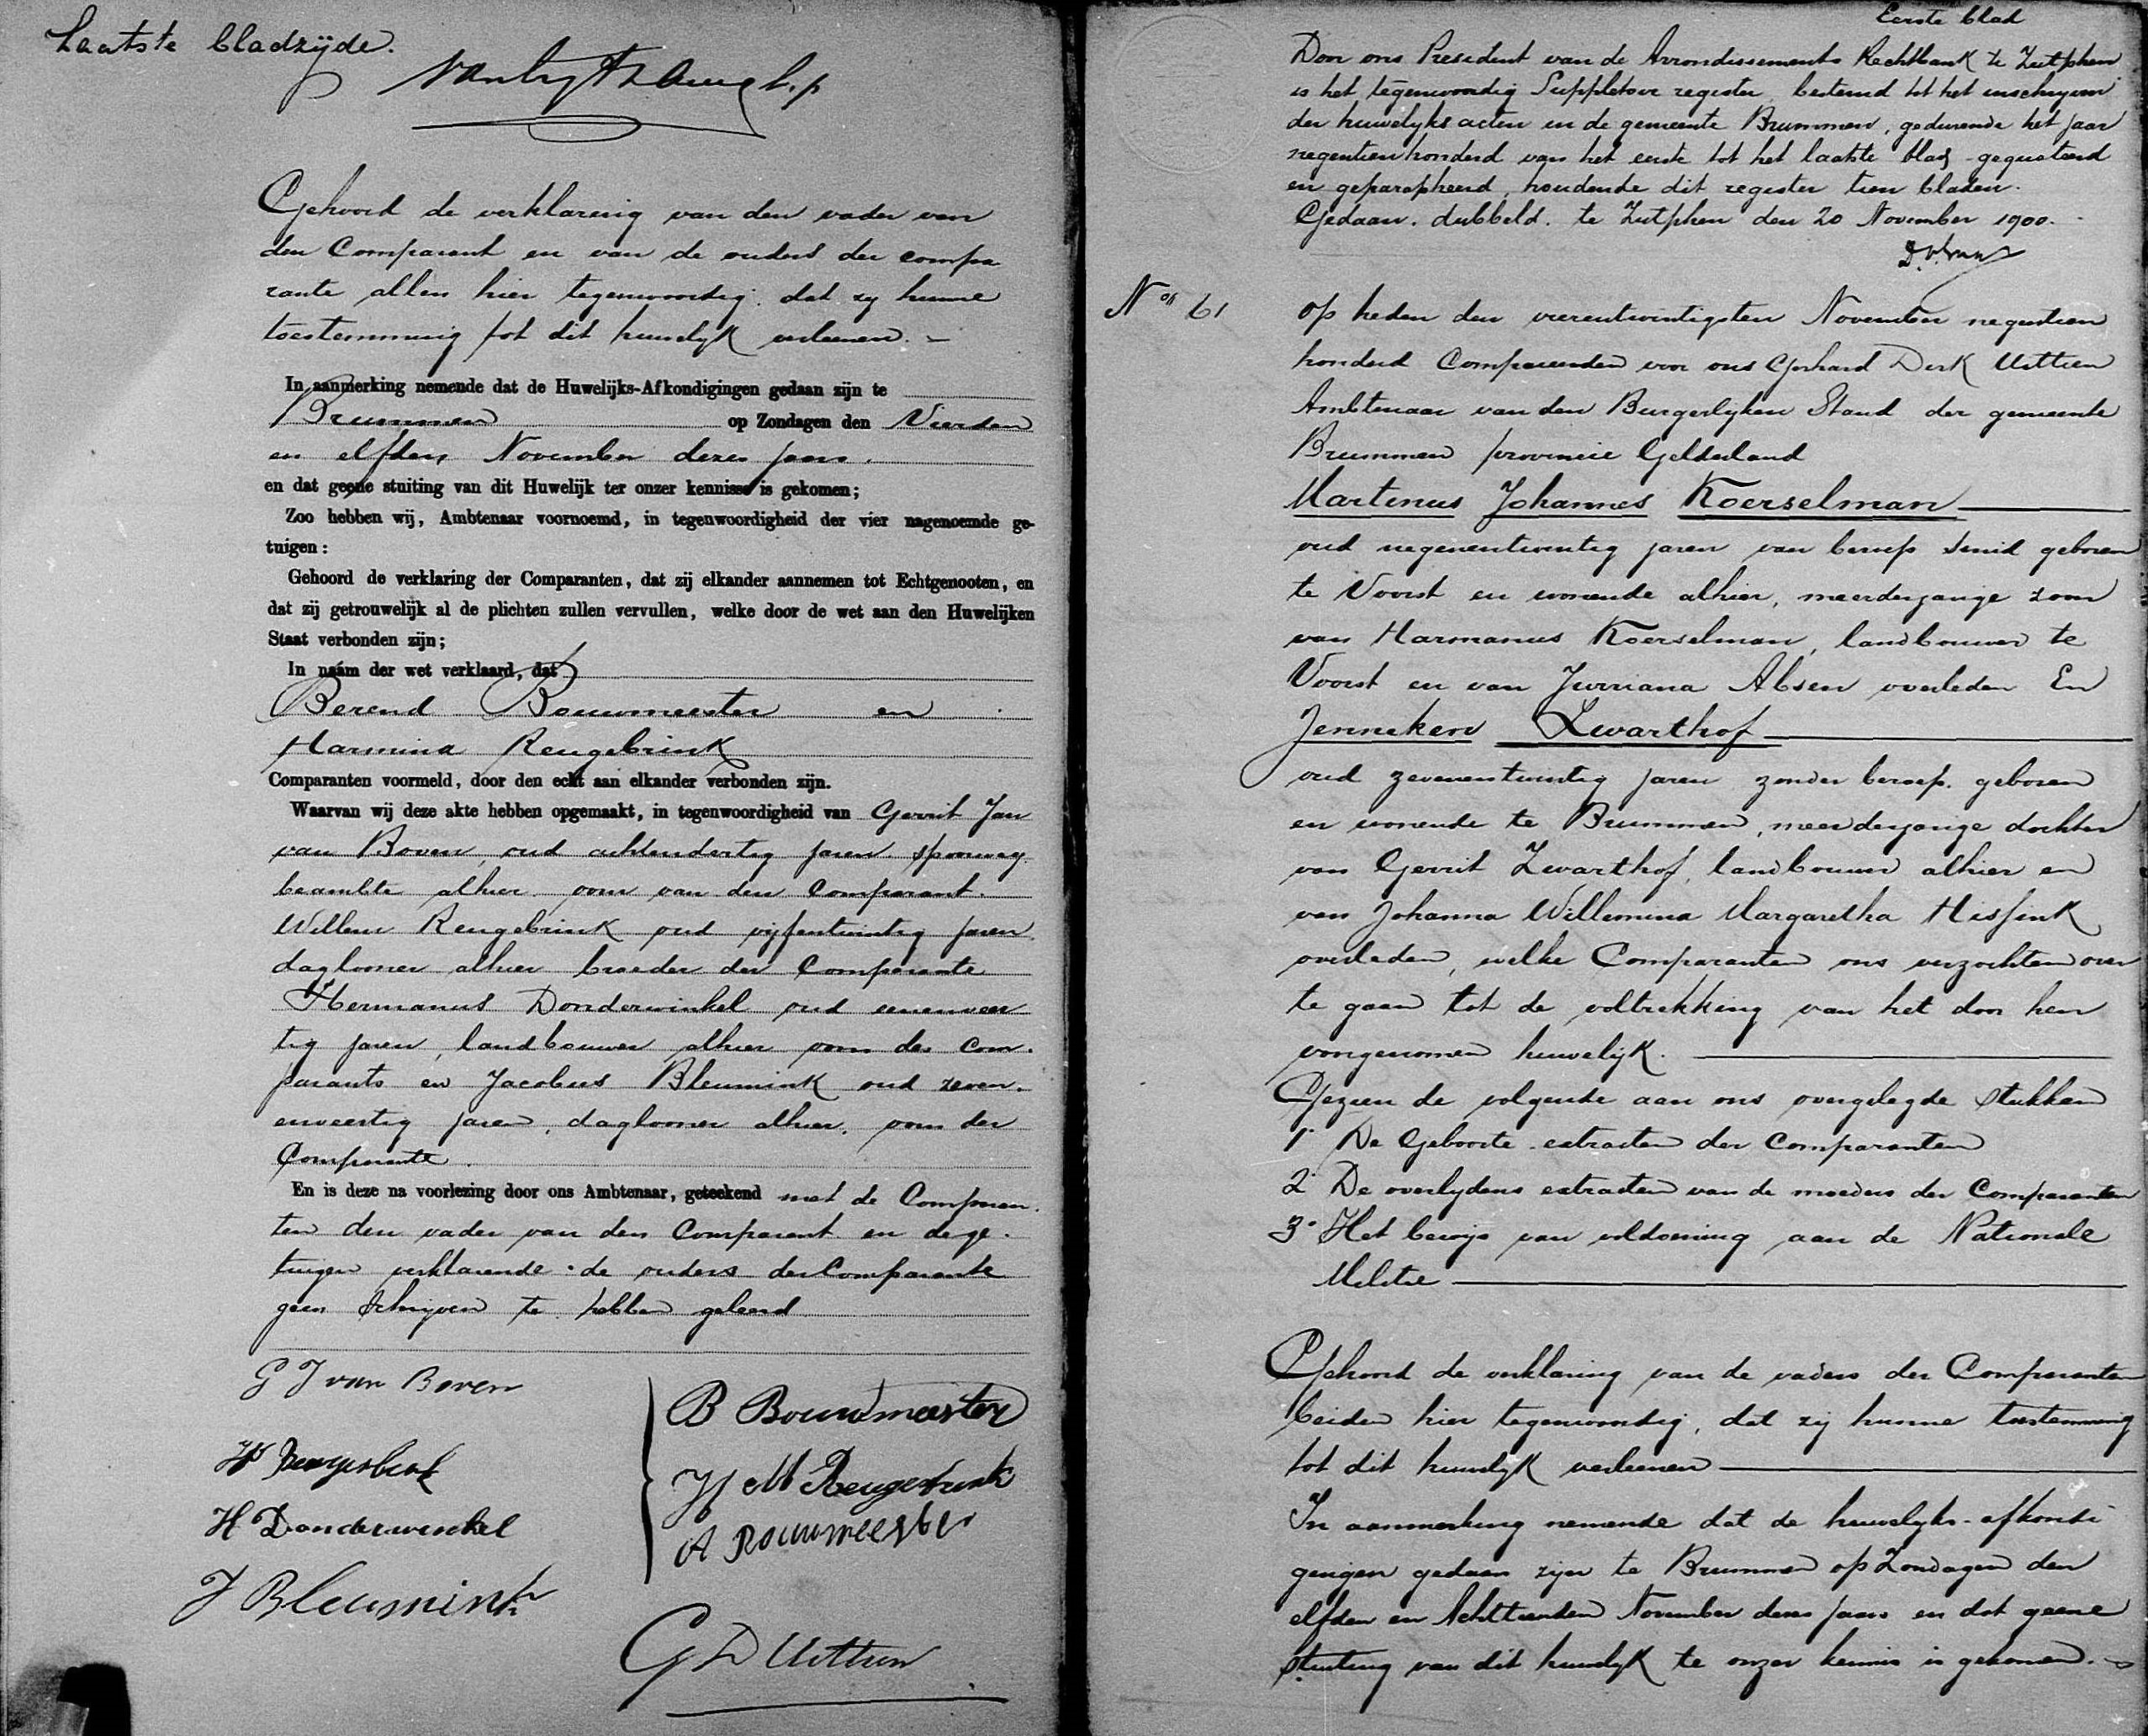 Laatste bladzijde.
Gehoord de verklaring van den vader van
den Comparant en van de ouders der compa
rante allen hier tegenwoordig. dat zy hunne
toestemming tot dit huwelyk verleenen. –
In aanmerking nemende dat de Huwelijks-Afkondigingen gedaan zijn te
Brummen op Zondagen den Vierden
en elfden November dezes jaars.
en dat geene stuiting van dit Huwelijk ter onzer kennisse is gekomen;
Zoo hebben wij, Ambtenaar voornoemd, in tegenwoordigheid der vier nagenoemde ge-
tuigen:
Gehoord de verklaring der Comparanten, dat zij elkander aannemen tot Echtgenooten, en
dat zij getrouwelijk al de plichten zullen vervullen, welke door de wet aan den Huwelijken
Staat verbonden zijn;
In naam der wet verklaard, dat
Berend Bouwmeester en
Harmina Reugebrink
Comparanten voormeld, door den echt aan elkander verbonden zijn.
Waarvan wij deze akte hebben opgemaakt, in tegenwoordigheid van Gerrit Jan
van Boven, oud achtendertig jaren. spoorweg
beambte alhier oom van den Comparant.
Willem Reugebrink oud vijfentwintig jaren
daglooner alhier broeder der Comparante
Hermanus Donderwinkel oud eenenveer
tig jaren, landbouwer alhier oom des Com.
parants en Jacobus Bleumink oud zeven.
enveertig jaren, daglooner alhier. oom der
Comparante.
En is deze na voorlezing door ons Ambtenaar, geteekend met de Comparan.
ten den vader van den Comparant en de ge.
tuigen verklarende de ouders der Comparante
geen schrijven te hebben geleerd
G J van Boven
B Bouwmeester
H M Reugebrink
H Donderwinkel
A Bouwmeester
J Bleumink
G D Uittien
Eerste blad
Door ons President van de Arrondissements Rechtbank te Zutphen
is het tegenwoordig Suppletoir register bestemd tot het inschryven
der huwelyks acten in de gemeente Brummen, gedurende het jaar
negentienhonderd van het eerste tot het laatste blad gequoteerd
en geparapheerd, houdende dit register tien bladen.
Gedaan. dubbeld. te Zutphen den 20 November 1900.
No 61
Op heden den vierentwintigsten November negentien
honderd Compareerden voor ons Gerhard Dirk Uittien
Ambtenaar van den Burgerlijken Stand der gemeente
Brummen provincie Gelderland
Martinus Johannes Koerselman
oud negenentwintig jaren van beroep smid geboren
te Voorst en wonende alhier, meerderjarige zoon
van Harmanus Koerselman, landbouwer te
Voorst en van Jurriana Absen overleden En
Jenneken Zwarthof
oud zevenentwintig jaren zonder beroep. geboren
en wonende te Brummen, meerderjarige dochter
van Gerrit Zwarthof, landbouwer alhier en
van Johanna Willemina Margaretha Hissink
overleden, welke Comparanten ons verzochten over
te gaan tot de voltrekking van het door hen
voorgenomen huwelijk.
Gezien de volgende aan ons overgelegde stukken
1o De Geboorte-extracten der Comparanten
2o De overlydens extracten van de moeders der Comparanten
3o Het bewijs van voldoening aan de Nationale
Militie
Gehoord de verklaring van de vaders der Comparanten
beiden hier tegenwoordig, dat zij hunne toestemming
tot dit huwelyk verleenen
In aanmerking nemende dat de huwelyks-afkondi
gingen gedaan zijn te Brummen op Zondagen den
elfden en Achttienden November dezes jaars en dat geene
stuiting van dit huwelyk te onzer kennis is gekomen.